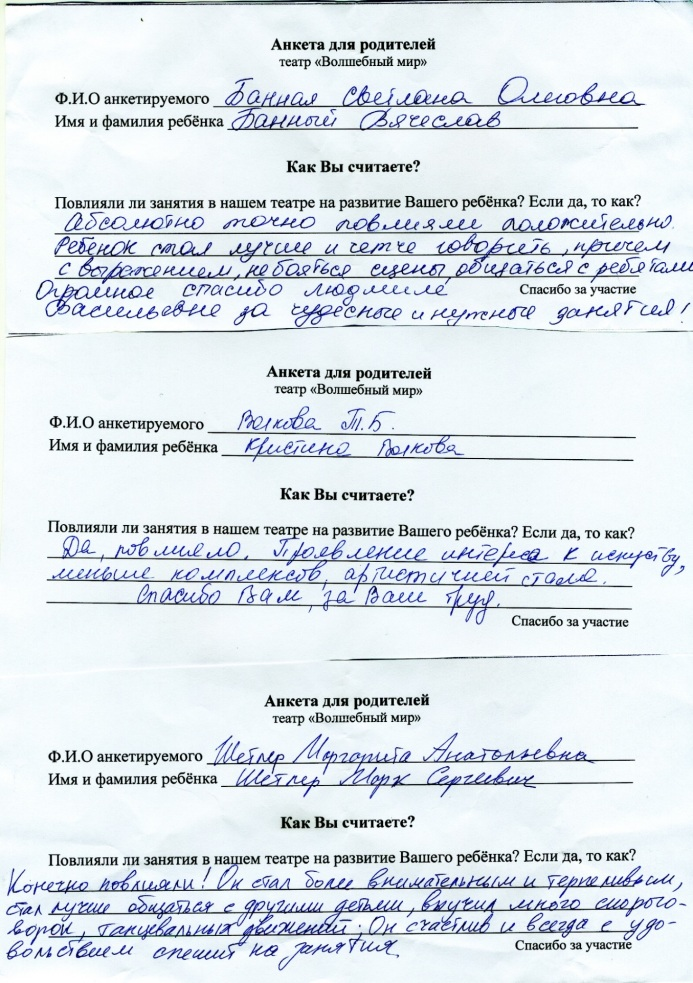 Анкета для родителей
театр «Волшебный мир»
Ф.И.О анкетируемого Банная Светлана Олеговна
Имя и фамилия ребёнка Банный Вячеслав
Как Вы считаете?
Повлияли ли занятия в нашем театре на развитие Вашего ребёнка? Если да, то как?
Абсолютно точно повлияли положительно.
Ребенок стал лучше и четче говорить, причем
с выражением, не бояться сцены, общаться с ребятами
Огромное спасибо Людмиле Спасибо за участие
Васильевне за чудесные и нужные занятия!
Анкета для родителей
театр «Волшебный мир»
Ф.И.О анкетируемого Волкова Т.Б.
Имя и фамилия ребёнка Кристина Волкова
Как Вы считаете?
Повлияли ли занятия в нашем театре на развитие Вашего ребёнка? Если да, то как?
Да, повлияло. Проявление интереса к искуству,
меньше комплексов, артистичней стала.
Спасибо Вам, за Ваш труд.
Спасибо за участие
Анкета для родителей
театр «Волшебный мир»
Ф.И.О анкетируемого Шетлер Маргарита Анатольевна
Имя и фамилия ребёнка Шетлер Марк Сергеевич
Как Вы считаете?
Повлияли ли занятия в нашем театре на развитие Вашего ребёнка? Если да, то как?
Конечно повлияли! Он стал более внимательным и терпеливым,
стал лучше общаться с другими детьми, выучил много скорого-
ворок, танцевальных движений. Он счастлив и всегда с удо-
вольствием спешит на занятия. Спасибо за участие